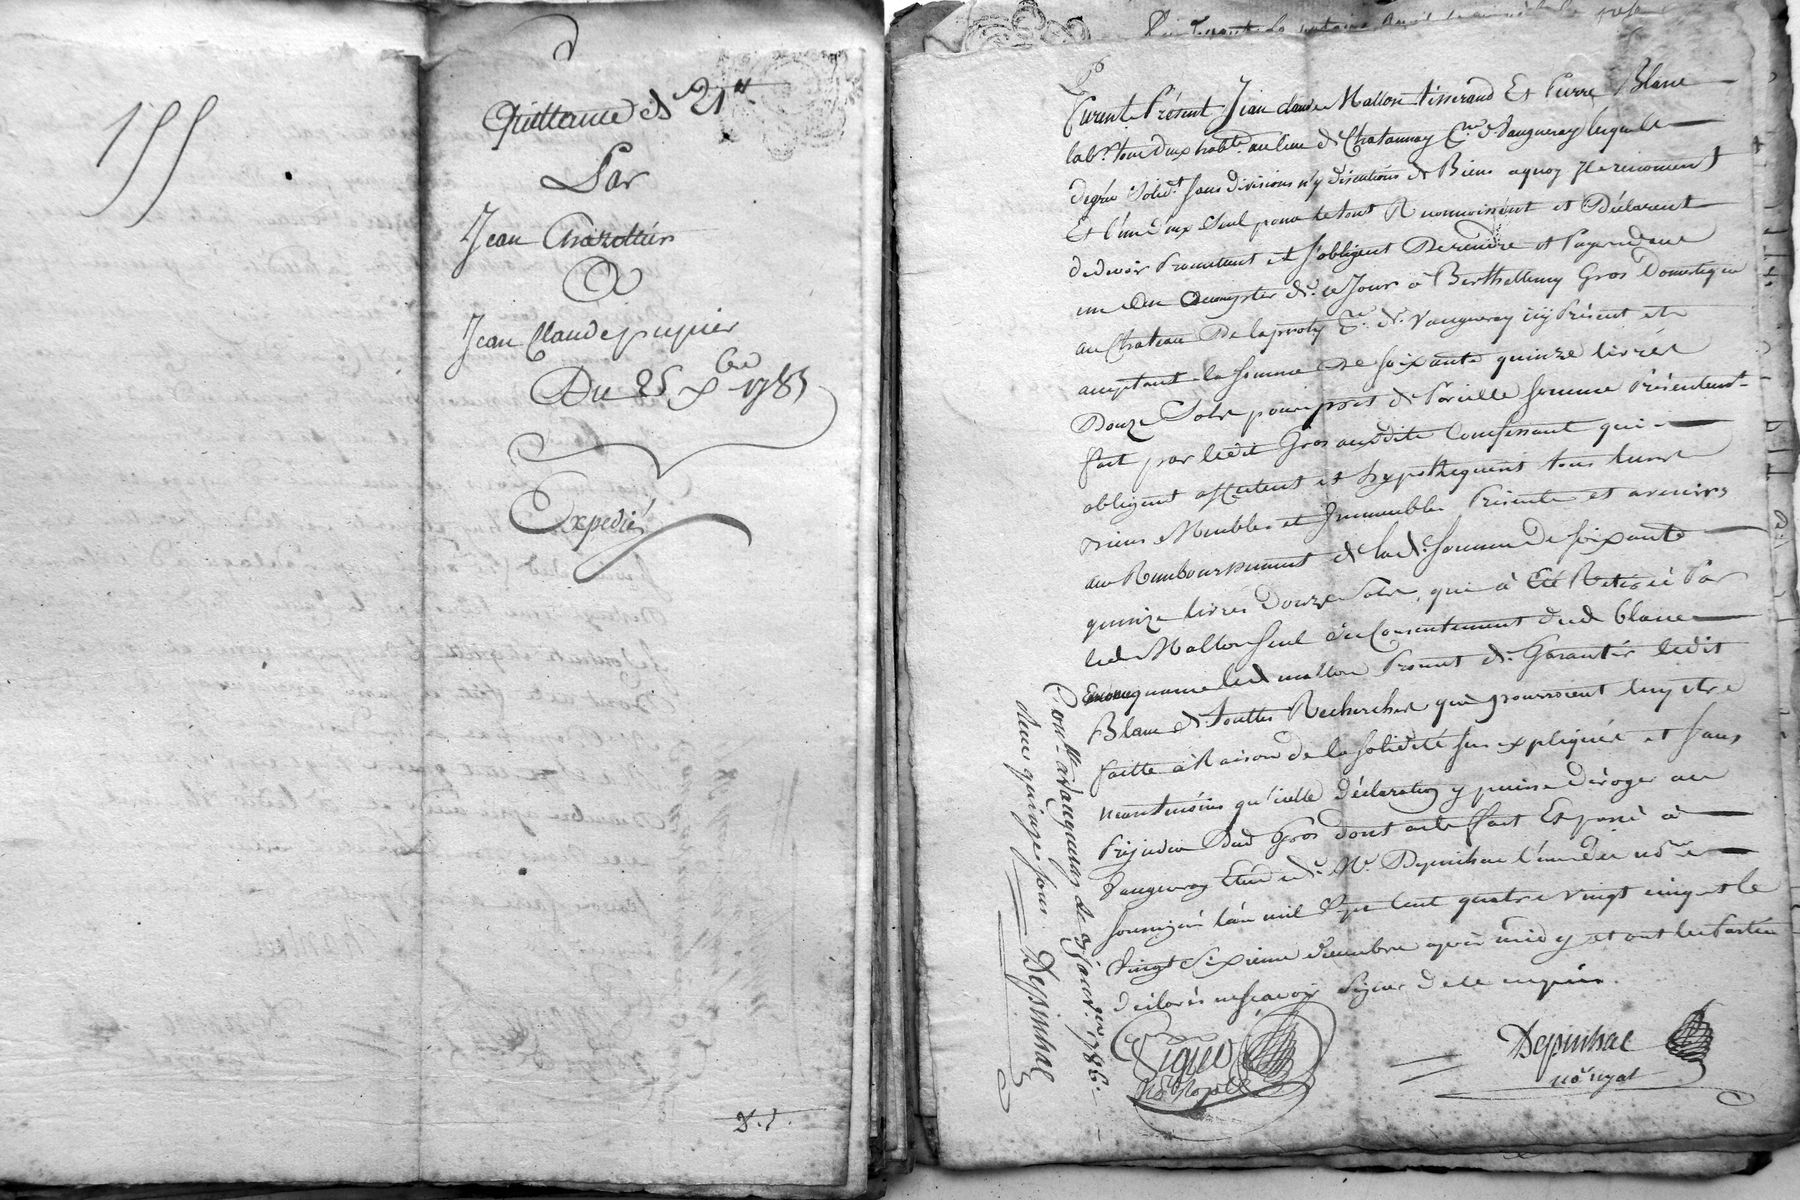 155
Quittance de 21 tt
Par
Jean Charettier
A
Jean Claude pupier
Du 25 Xbre 1785
Expedié
Furent Présent Jean claude Mallon tisserand Et Pierre Blanc
lab.r tout deux habt.s au lieu de Chatannay de Vaugneray lequels
degrée solid.t sans divisions n'y discutions de Biens aquoy Ils renoncent
Et l'un d'eux seul pour le tout Reconnoissent et Déclarent
de devoir Promettent et s'obligent De rendre et payer dans
un an acompter de ce Jour à Berthellemy Gros Domestique
au Chateau De de Vaugneray icy Présent et
acceptant la somme de soixante quinze livres
Douze Sols pour prest de Pareille somme Présentement
fait par ledit Gros ausdits Confessant qui
obligent affectent et hypothequent tous leurs
Biens Meubles et Immeubles Présents et avenirs
au Remboursement de lad.e somme De soixante
quinze livres Douze Sols, que à Eté Retirée Par
led. Mallon seul du Consentement dud. blanc
led. mallon Promet de Garantir ledit
Blanc de touttes Recherches que pourroient luy etre
faitte à Raison de la solidité sus expliquée et sans
neantmoins qu'icelle déclaration y puisse déroger au
Préjudice Dud. Gros dont acte fait Et passé à
Vaugneray Etude de M.e Depinhac l'un des no.res
soussignés l'an mil sept cent quatre vingt cinq et le
Vingt Sixieme decembre après midy et ont les Parties
déclarés ne scavoir Signer de ce enquis.
Depinhac
no.re royal
Not. Royal
Con.llé a Vaugneray le janv. 1786.
Reçu quinze sous Depinhac